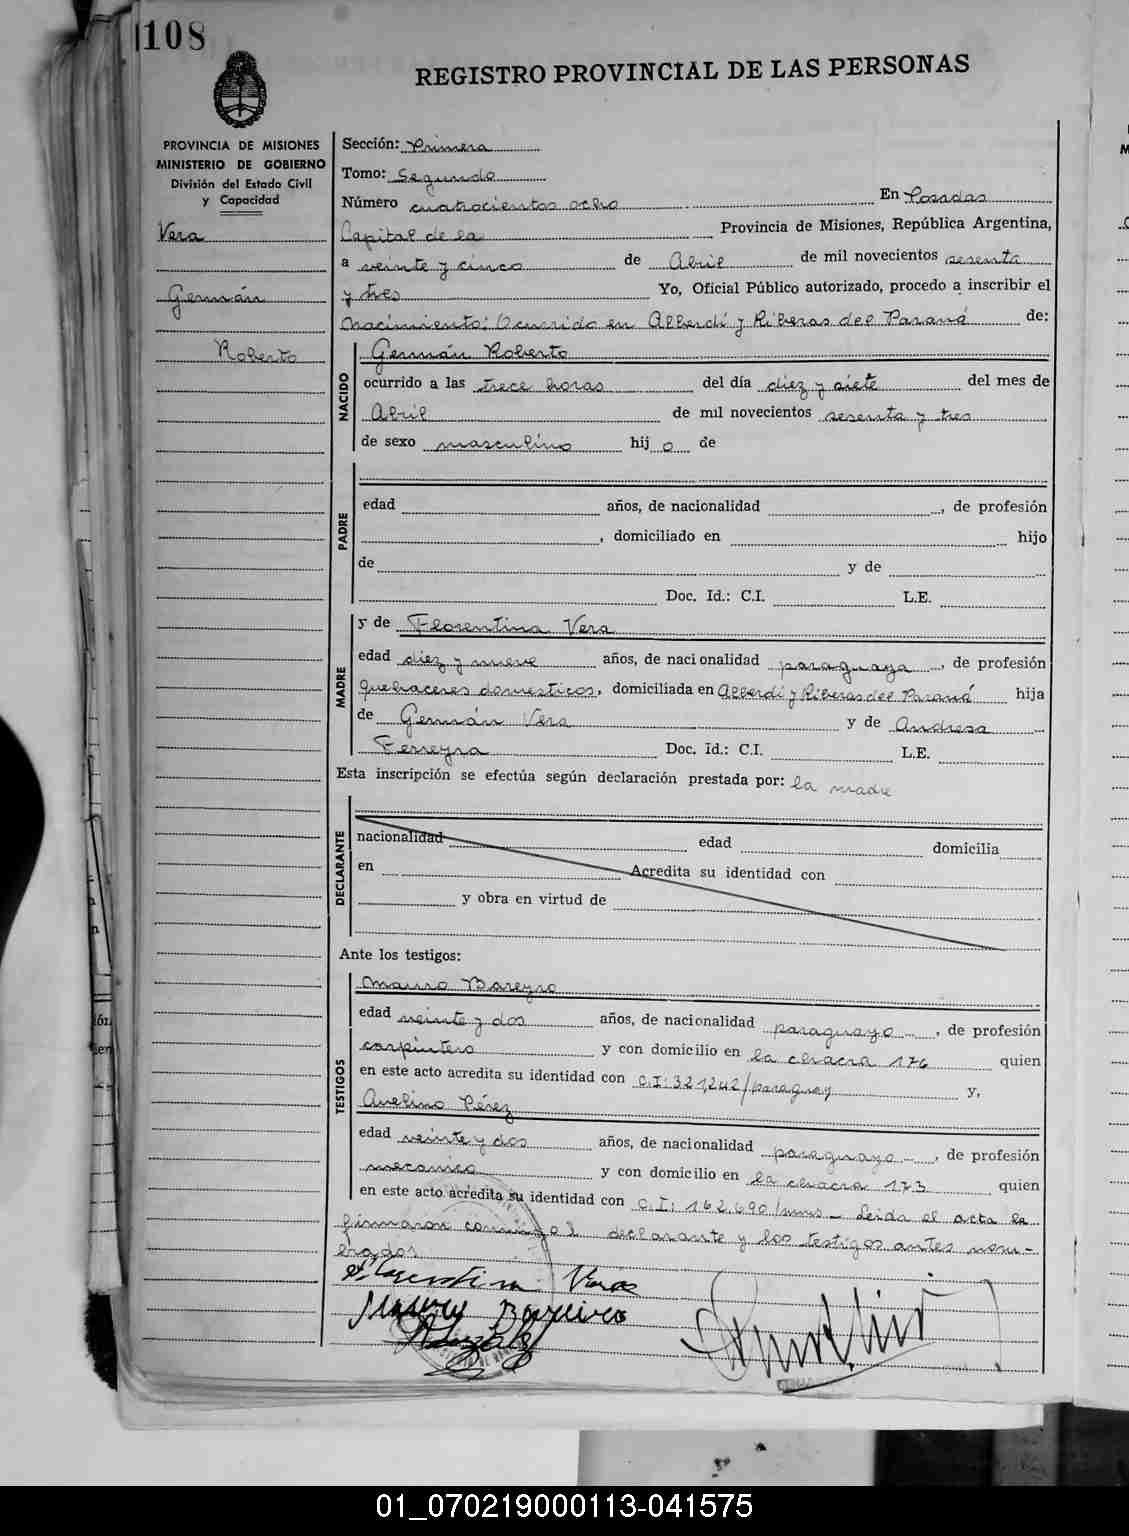 108
REGISTRO PROVINCIAL DE LAS PERSONAS
PROVINCIA DE MISIONES
MINISTERIO DE GOBIERNO
División del Estado Civil
y Capacidad
Vera
Germán
Roberto
Sección: Primera
Tomo: Segundo
Número cuatrocientos ocho En Posadas
Capital de la Provincia de Misiones, República Argentina,
a veinte y cinco de Abril de mil novecientos sesenta
y tres Yo, Oficial Público autorizado, procedo a inscribir el
Nacimiento: Ocurrido en Alberdi y Riberas del Paraná de:
NACIDO
Germán Roberto
ocurrido a las trece horas del día diez y siete del mes de
Abril de mil novecientos sesenta y tres
de sexo masculino hij o de
PADRE
edad años, de nacionalidad , de profesión
, domiciliado en hijo
de y de
Doc. Id.: C.I. L.E.
MADRE
y de Florentina Vera
edad diez y nueve años, de nacionalidad paraguaya , de profesión
quehaceres domesticos, domiciliada en Alberdi y Riberas del Paraná hija
de Germán Vera y de Andresa
Ferreyra Doc. Id.: C.I. L.E.
Esta inscripción se efectúa según declaración prestada por: la madre
DECLARANTE
nacionalidad edad domicilia
en Acredita su identidad con
y obra en virtud de
Ante los testigos:
TESTIGOS
Mauro Bareyro
edad veinte y dos años, de nacionalidad paraguayo , de profesión
carpintero y con domicilio en la chacra 176 quien
en este acto acredita su identidad con C.I: 321,242/paraguay y,
Avelino Pérez
edad veinte y dos años, de nacionalidad paraguayo , de profesión
mecanico y con domicilio en la chacra 173 quien
en este acto acredita su identidad con C.I: 162.690/mns – Leida el acta la
firmaron conmigo declarante y los testigos antes nom-
brados
01_070219000113-041575